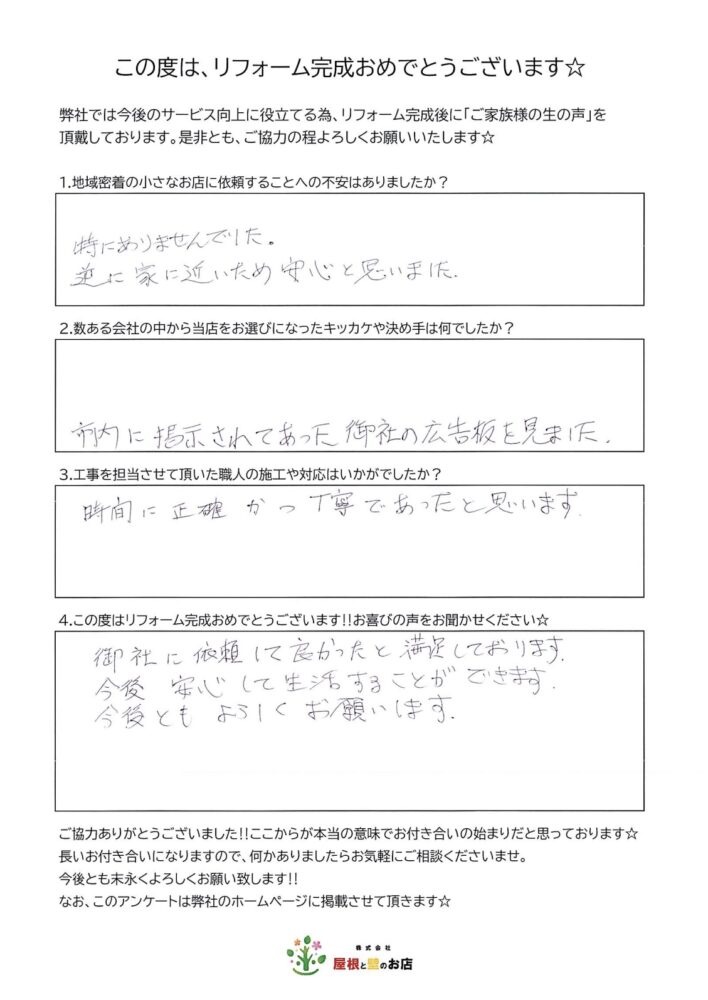 この度は、リフォーム完成おめでとうございます☆
弊社では今後のサービス向上に役立てる為、リフォーム完成後に「ご家族様の生の声」を
頂戴しております。是非とも、ご協力の程よろしくお願いいたします☆
1.地域密着の小さなお店に依頼することへの不安はありましたか？
特にありませんでした。
逆に家に近いため安心と思いました.
2.数ある会社の中から当店をお選びになったキッカケや決め手は何でしたか？
市内に掲示されてあった御社の広告板を見ました.
3.工事を担当させて頂いた職人の施工や対応はいかがでしたか？
時間に正確かつ丁寧であったと思います.
4.この度はリフォーム完成おめでとうございます!!お喜びの声をお聞かせください☆
御社に依頼して良かったと満足しております.
今後安心して生活することができます.
今後ともよろしくお願いします.
ご協力ありがとうございました!!ここからが本当の意味でお付き合いの始まりだと思っております☆
長いお付き合いになりますので、何かありましたらお気軽にご相談くださいませ。
今後とも末永くよろしくお願い致します!!
なお、このアンケートは弊社のホームページに掲載させて頂きます☆
株式会社
屋根と壁のお店